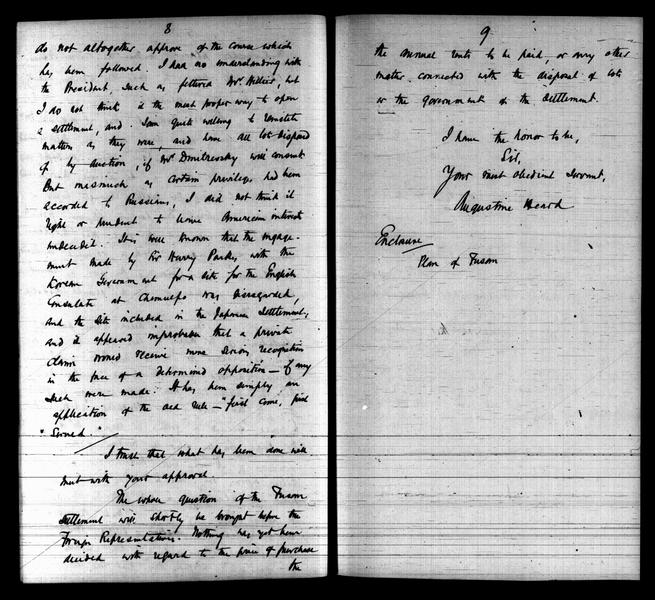 8
do not altogether approve of the course which
has been followed. I had no understanding with
the President, such as fettered Mr. Hillier, but
I do not think it the most proper way to open
a settlement, and I am quite willing to
matters as they were, and have all lots disposed
of by auction, if Mr Dmitrevsky will consent
But inasmuch as certain privileges had been
accorded to Russians, I did not think it
right or prudent to leave American interests
undecided. It is well known that the engage-
ment made by Sir Harry Parkes with the
Korean Government for a site for the English
Consulate at Chemulpo was disregarded,
and the site included in the Japanese Settlement,
and it appeared improbable that a private
claim would receive more serious recognition
in the face of a determined opposition — if any
such were made. It has been simply an
application of the old rule — "first come, first
"served."
I trust that what has been done will
meet with your approval.
The whole question of the Fusan
Settlement will shortly be brought before the
Foreign Representatives. Nothing has yet been
decided with regard to the price of purchase
the
9
the annual rents to be paid, or any other
matter connected with the disposal of lots
or the government of the settlement.
I have the honor to be,
Sir,
Your most obedient servant,
Augustine Heard
Enclosure
Plan of Fusan